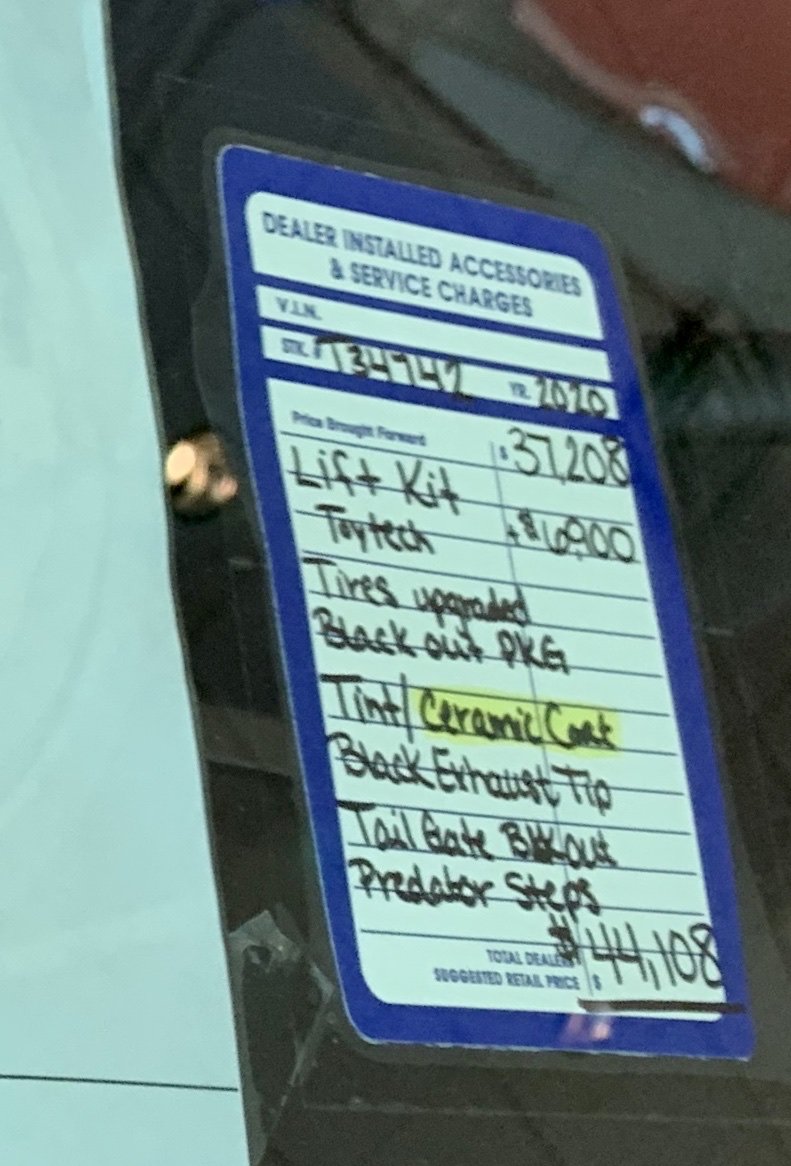 DEALER INSTALLED ACCESSORIES
& SERVICE CHARGES
V.I.N.
STK. # T34742 YR. 2020
Price Brought Forward $ 37,208
Lift Kit
Toytech +$6900
Tires upgraded
Black out PKG
Tint/Ceramic Coat
Black Exhaust Tip
Tail Gate Blkout
Predator Steps
$44,108
TOTAL DEALER
SUGGESTED RETAIL PRICE $